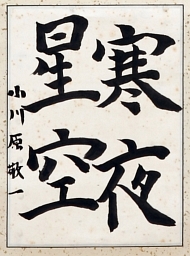 寒夜
星空
小川原敬一